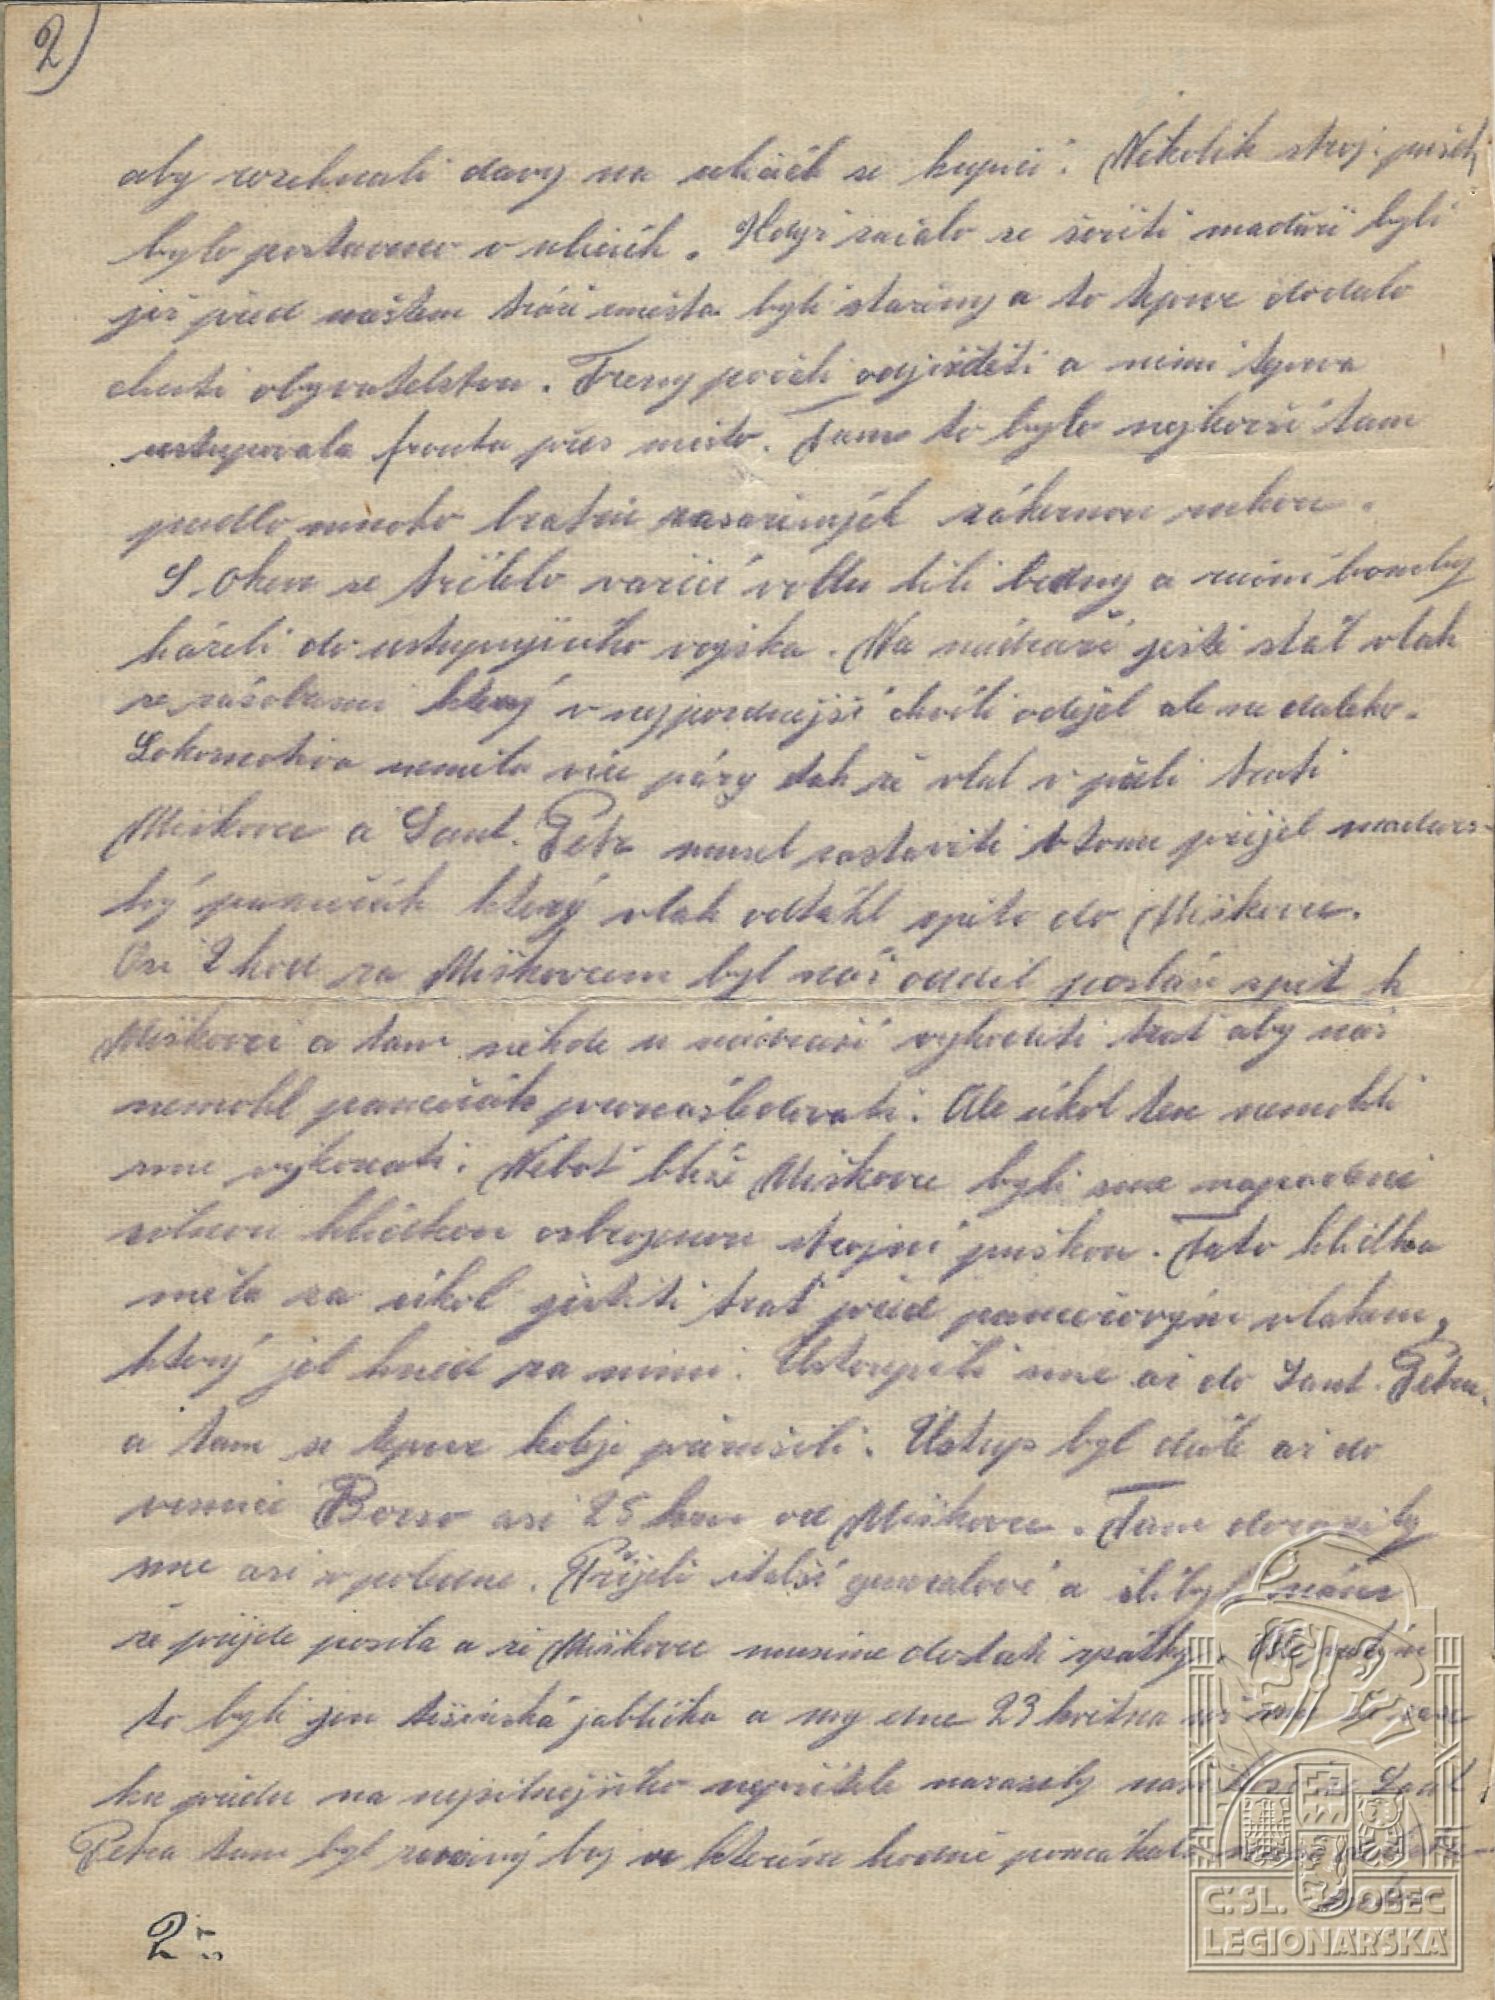 2)
aby rozehnali davy na ulicích se kupící. Několik stroj. pušek
bylo postaveno v ulicích. Když začalo se šeřiti maďaři byli
již před naštem tváří města byli stařeny a to teprve dodalo
chuti obyvatelstvu. Treny počali odjížděti a nimi teprva
ustupovala fronta přes město. Tam to bylo nejhorší tam
padlo mnoho bratrů zasaženýh zákernou rukou.
S. Oken se střílelo vařící vodu lili bedny a ruční bomby
házeli do ustupujícího vojska. Na nádraží ještě stál vlak
se zásobami který v nejpozdnejší chvíli odejel ale ne daleko.
Lokomotiva neměla více páry tak že vlak v půli trati
Miškovec a Sant. Petr musel zastaviti v tom přijel maďars-
ký pancéřák který vlak odtáhl zpět do Miškovce.
Asi 2 hod za Miškovcem byl náš oddíl poslán zpět k
Miškovci a tam někde u nádraží vyhoditi trať aby nás
nemohl pancéřák pronásledovati. Ale úkol ten nemohli
sme vykonati. Neboť blíže Miškovce byli sme napadeni
silnou hlídkou ozbrojenou strojní puškou. Tato hlídka
měla za úkol jistiti trať před pancéřovým vlakem,
který jel hned za nimi. Ustoupili sme až do Sant. Petru.
a tam se teprve koleje přerušili. Ústup byl dále až do
vesnice Borso asi 25 km od Miškovce. Tam dorazily
sme asi v poledne. Přijeli italší generalové a slíbyl nám
že přijde posila a že Miškovec musíme dostati zpátky. Ale
to byli jen těšínská jablíčka a my dne 23 května
ku předu na nejsilnějšího nepřítele narazily Sant
Petra tam byl zuřivý boj ve kterém hodně pomáhala
2.
Č.SL. OBEC
LEGIONÁŘSKÁ